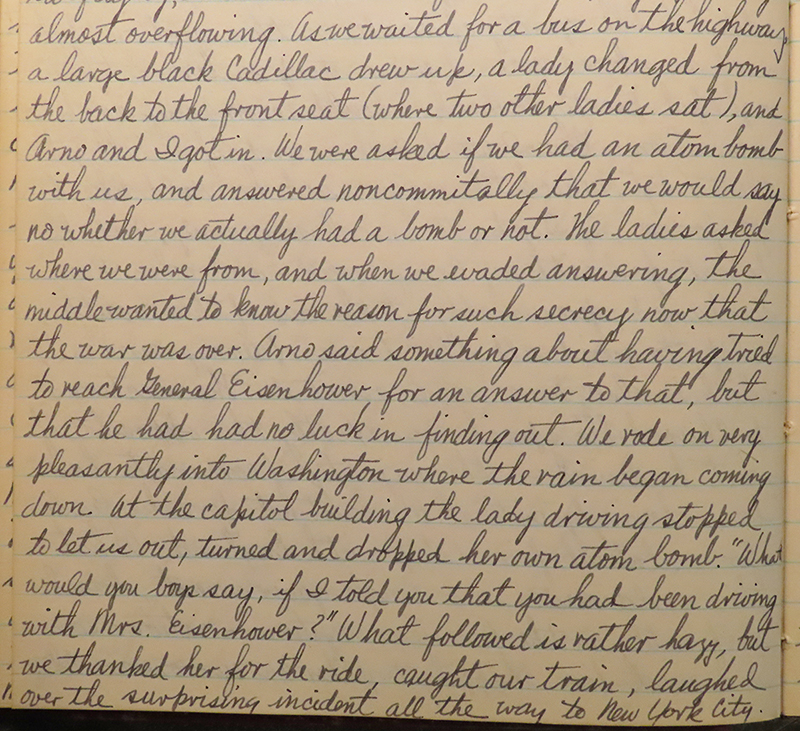 almost overflowing. As we waited for a bus on the highway,
a large black Cadillac drew up, a lady changed from
the back to the front seat (where two other ladies sat), and
Arno and I got in. We were asked if we had an atom bomb
with us, and answered noncommitally that we would say
no whether we actually had a bomb or not. The ladies asked
where we were from, and when we evaded answering, the
middle wanted to know the reason for such secrecy now that
the war was over. Arno said something about having tried
to reach General Eisenhower for an answer to that, but
that he had had no luck in finding out. We rode on very
pleasantly into Washington where the rain began coming
down. At the capitol building the lady driving stopped
to let us out, turned and dropped her own atom bomb. "What
would you boys say, if I told you that you had been driving
with Mrs. Eisenhower?" What followed is rather hazy, but
we thanked her for the ride, caught our train, laughed
over the surprising incident all the way to New York City.